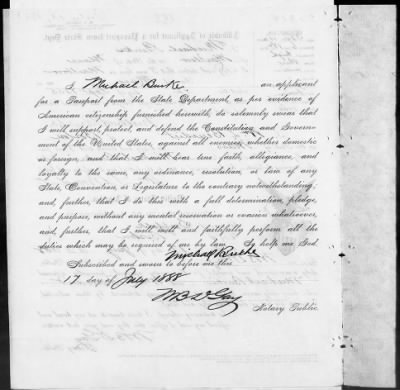 I, Michael Burke. an applicant
for a Passport from the State Department, as per evidence of
American citizenship furnished herewith, do solemnly swear that
I will support, protect, and defend the Constitution and Govern-
ment of the United States, against all enemies, whether domestic
or foreign, and that I will bear true faith, allegiance, and
loyalty to the same, any ordinance, resolution, or law of any
State, Convention, or Legislature to the contrary notwithstanding,
and, further, that I do this with a full determination, pledge,
and purpose, without any mental reservation or evasion whatsoever,
and, further, that I will well and faithfully perform all the
duties which may be required of me by law. So help me God.
Michael Burke
Subscribed and sworn to before me this
17 day of July 1888
Notary Public